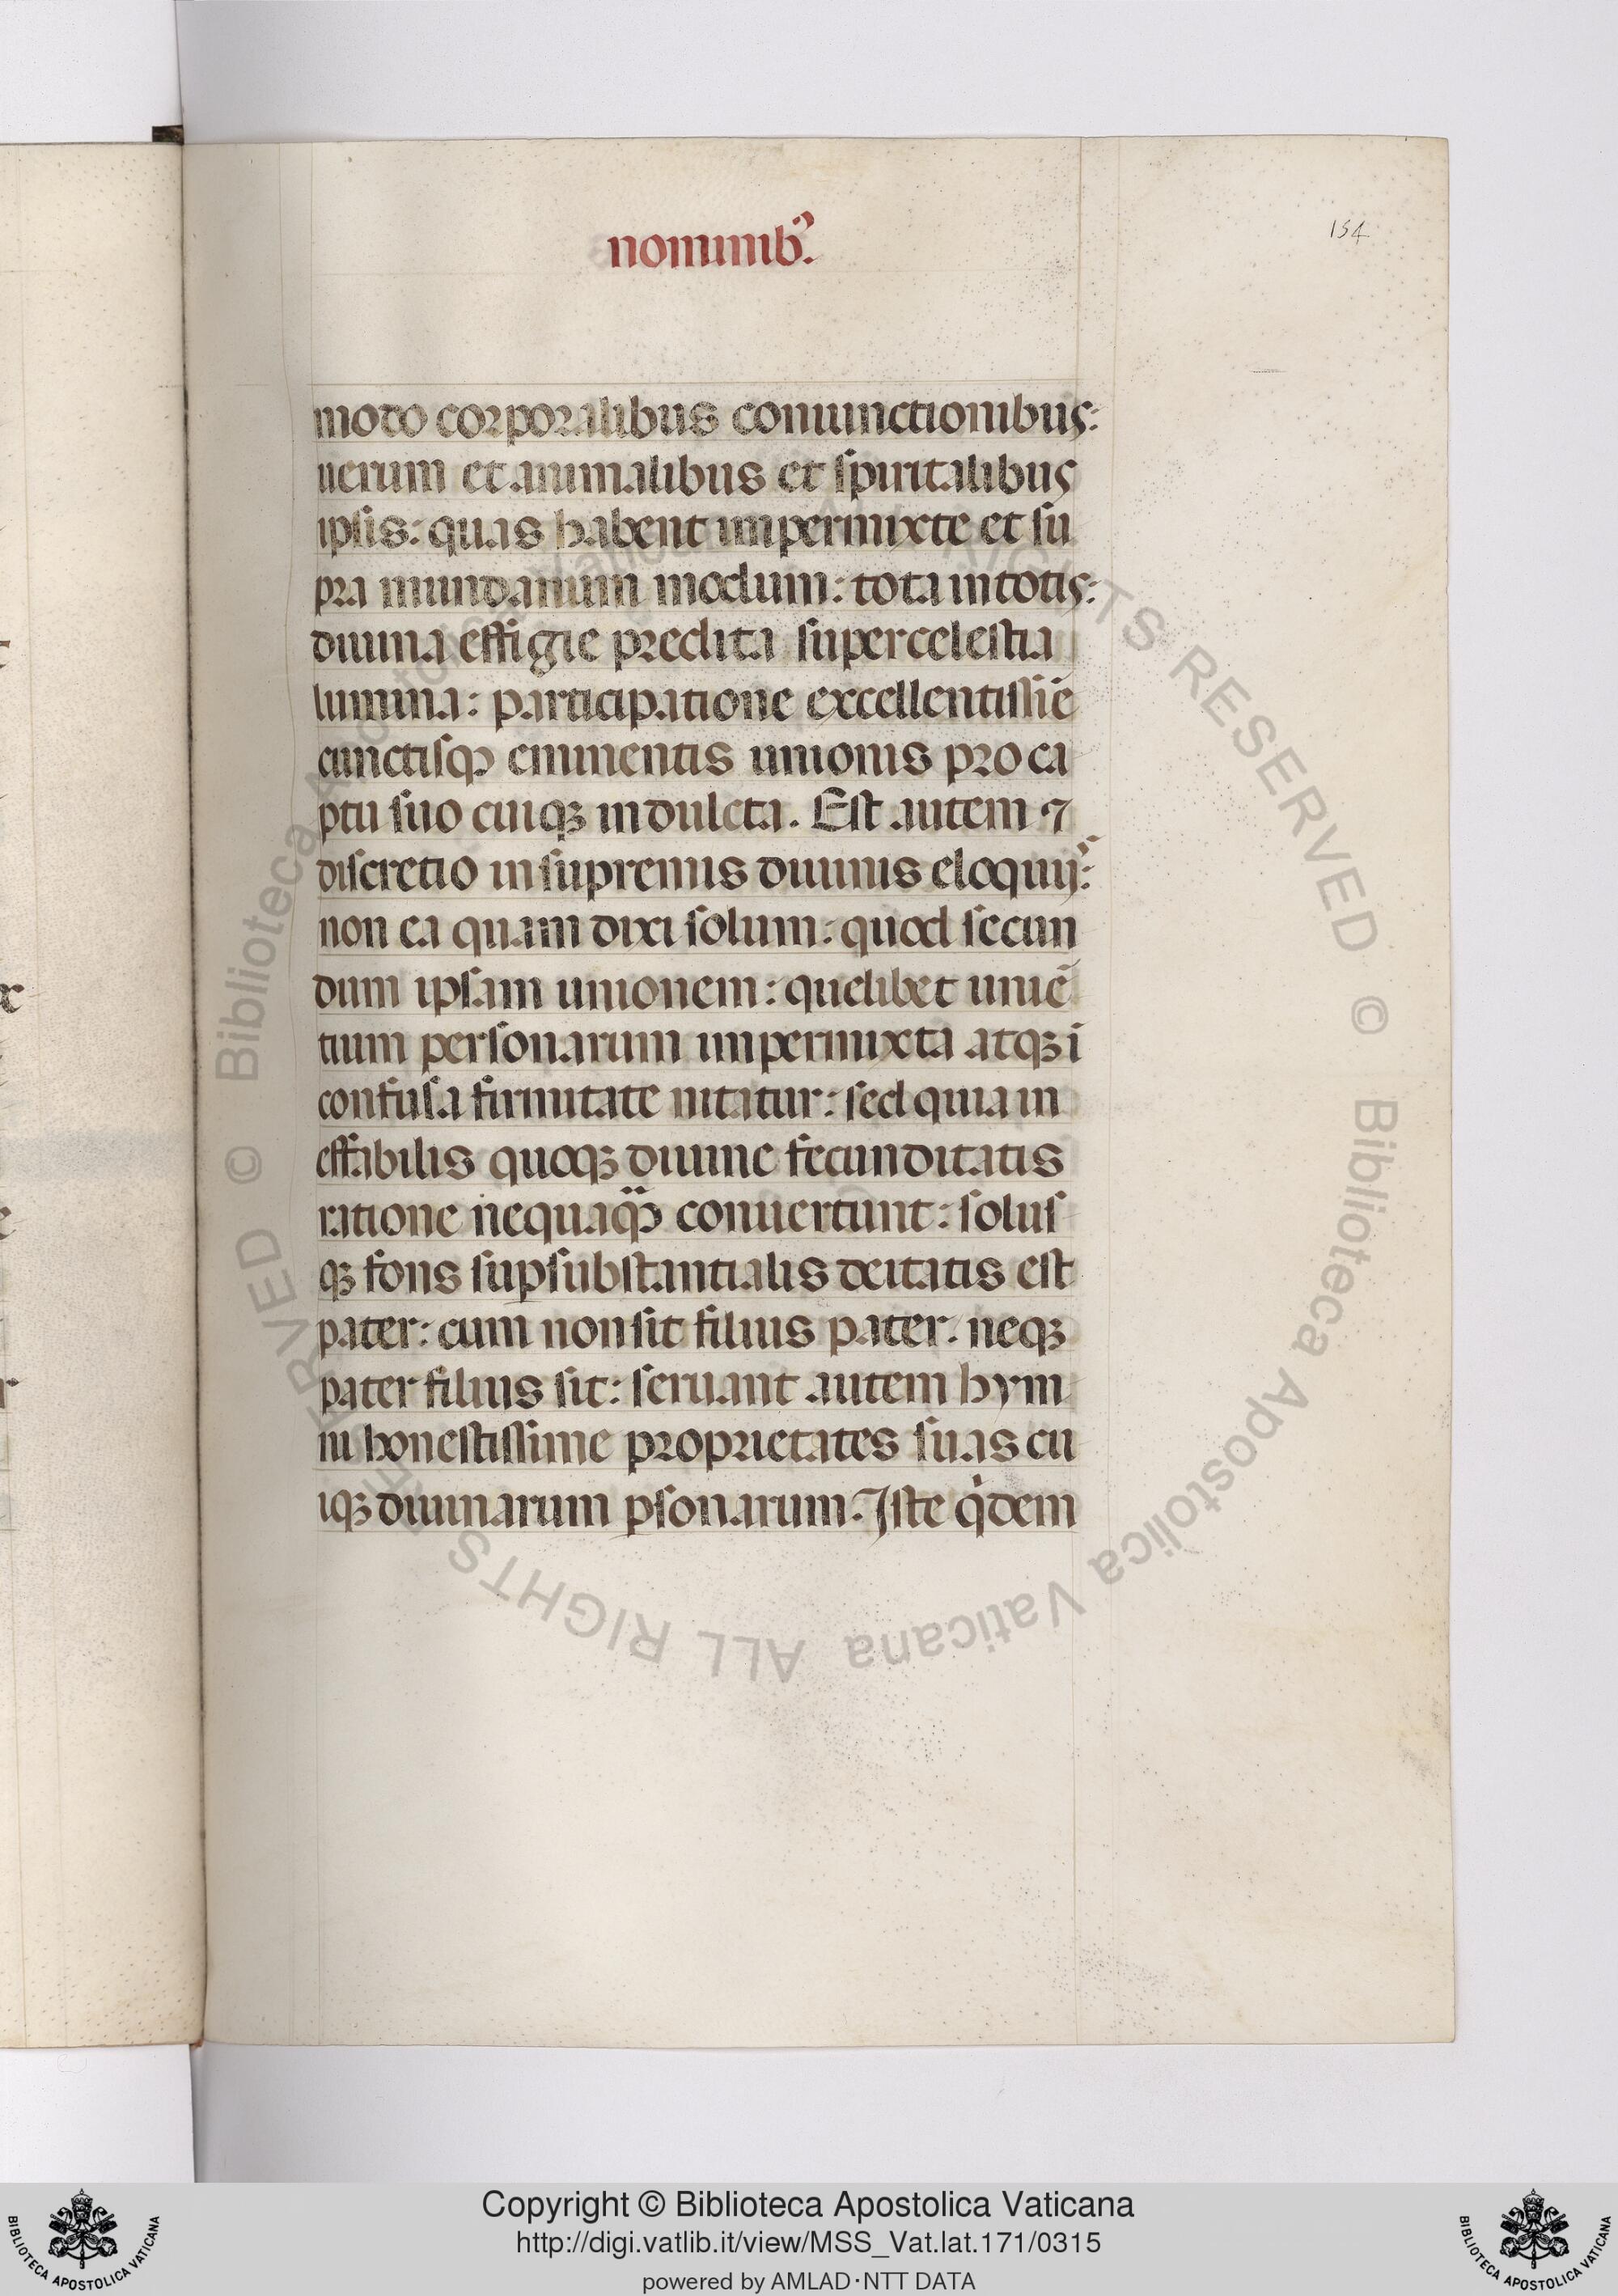 nominibꝰ.
154
modo corporalibus coniunctionibus:
uerum et animalibus et spiritalibus
ipsis: quas habent impermixte et su
pra mundanum modum: tota in totis:
diuina effigie predita supercelestia
lumina: participatione excellentissiē
cunctisqꝫ eminentis unionis pro ca
ptu suo cuiqꝫ indulcta. Est autem ⁊
discretio in supremis diuinis eloquijs:
non ea quam dixi solum: quod secun
dum ipsam unionem: quelibet uniē
tium personarum impermixta atqꝫ ī
confusa firmitate nitatur: sed quia in
effabilis quoqꝫ diuine fecunditatis
ratione nequaqȝ conuertunt: solus
qꝫ fons suꝑsubstantialis deitatis est
pater: cum non sit filius pater. neqꝫ
pater filius sit: seruant autem hym
ni honestissime proprietates suas cu
iqꝫ diuinarum ꝑsonarum. Iste qͥdem
© Biblioteca Apostolica Vaticana ALL RIGHTS RESERVED
© Biblioteca Apostolica Vaticana ALL RIGHTS RESERVED
Copyright © Biblioteca Apostolica Vaticana
http://digi.vatlib.it/view/MSS_Vat.lat.171/0315
powered by AMLAD·NTT DATA
BIBLIOTECA APOSTOLICA VATICANA
BIBLIOTECA APOSTOLICA VATICANA